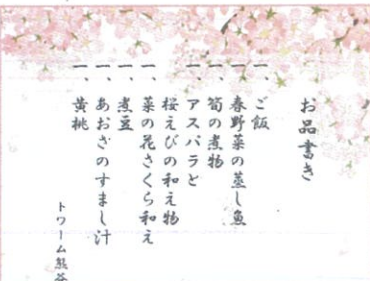 お品書き
一、ご飯
一、春野菜の蒸し魚
一、筍の煮物
一、アスパラと
桜えびの和え物
一、菜の花さくら和え
一、煮豆
一、あおさのすまし汁
一、黄桃
トワーム熊谷